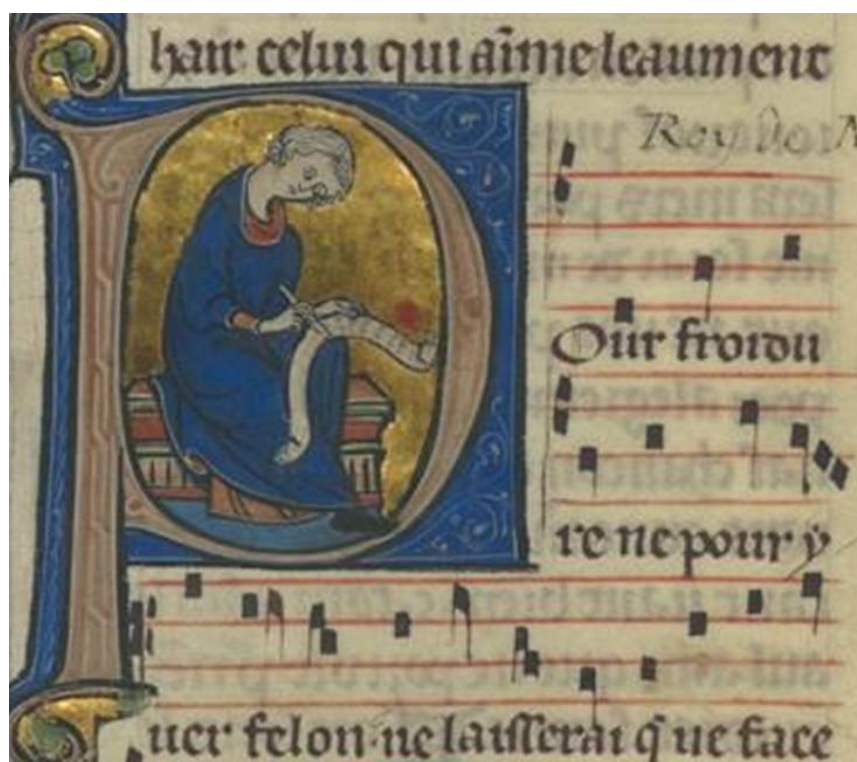 hair celui qui aime leaument
Roy de N
POur froidu
re ne pour y
uer felon·ne laisserai q̃ ne face